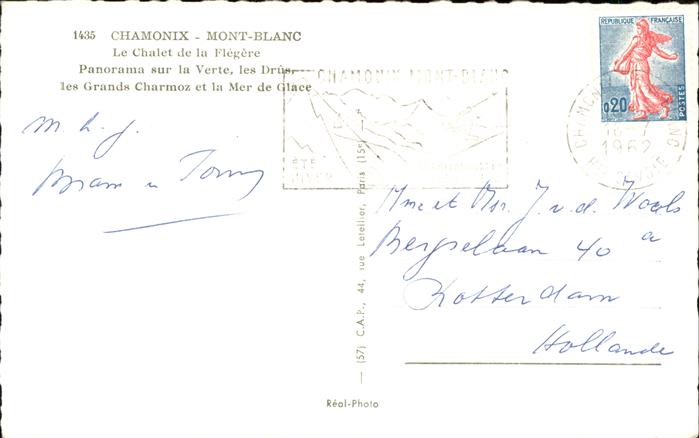 1435 CHAMONIX - MONT-BLANC
Le Chalet de la Flégère
Panorama sur la Verte, les Drus,
les Grands Charmoz et la Mer de Glace
CHAMONIX MONT-BLANC
ÉTÉ
HIVER
REPUBLIQUE FRANÇAISE
0,20
POSTES
1962
m. h. g.
Bram en Tonny
Mme et Mr. J. v. d. Wools
Bergselaan 40 a
Rotterdam
Hollande
(57) C.A.P., 44, rue Letellier, Paris (15e)
Réal-Photo